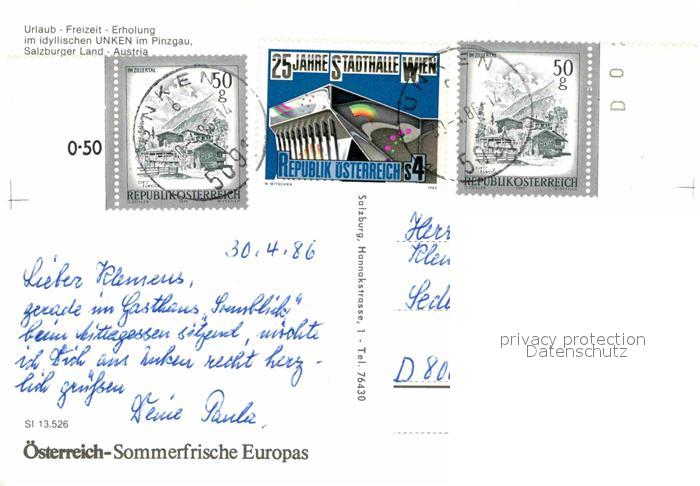 Urlaub - Freizeit - Erholung
im idyllischen UNKEN im Pinzgau,
Salzburger Land - Austria
0·50
IM ZILLERTAL
50
g
REPUBLIK ÖSTERREICH
25 JAHRE STADTHALLE WIEN
REPUBLIK ÖSTERREICH S4
W. MITSCHKA 1983
IM ZILLERTAL
50
g
REPUBLIK ÖSTERREICH
UNKEN
UNKEN
D O
30.4.86
Lieber Klemens,
gerade im Gasthaus „Sonnblick“
beim Mittagessen sitzend, möchte
ich Dich aus Unken recht herz-
lich grüßen
Deine Paula.
SI 13.526
Österreich-Sommerfrische Europas
Salzburg, Hannakstrasse, 1 - Tel. 76430
Herr
Klem
Sede
D 800
privacy protection
Datenschutz